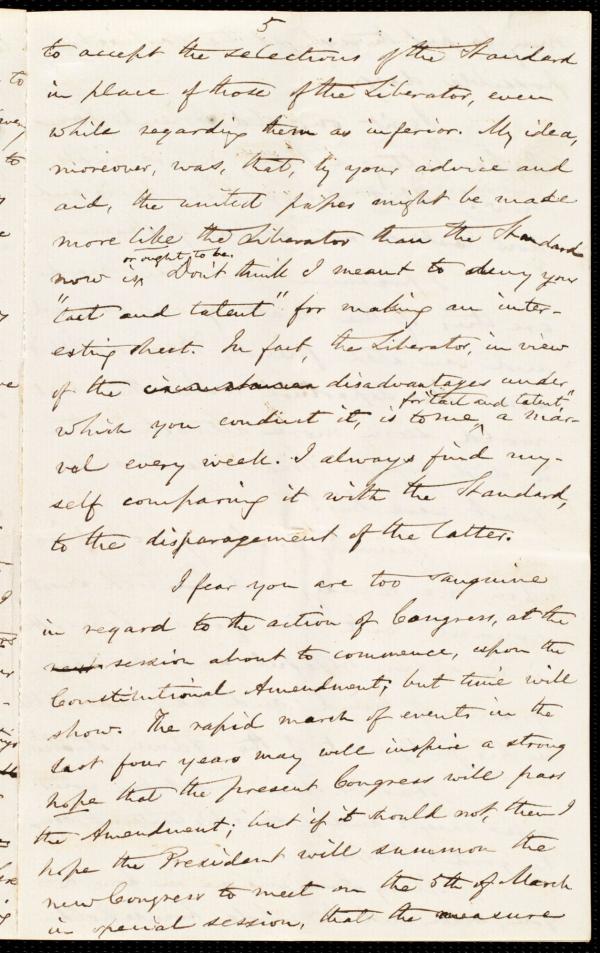 5
to accept the selections of the Standard
in place of those of the Liberator, even
while regarding them as inferior. My idea,
moreover, was, that, by your advice and
aid, the united paper might be made
more like the Liberator than the Standard
or ought to be.
now is, Don't think I meant to deny your
"tact and talent" for making an inter-
esting sheet. In fact, the Liberator, in view
of the circumstances disadvantages under
for "tact and talent"
which you conduct it, is to me, a mar-
vel every week. I always find my-
self comparing it with the Standard,
to the disparagement of the latter.
I fear you are too sanguine
in regard to the action of Congress, at the
session about to commence, upon the
Constitutional Amendment; but time will
show. The rapid march of events in the
last four years may well inspire a strong
hope that the present Congress will pass
the Amendment; but if it should not, then I
hope the President will summon the
new Congress to meet on the 5th of March
in special session, that the measure